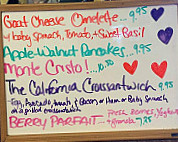 Goat Cheese Omelette... 9.95
w/ baby spinach, Tomato, + Sweet Basil
Apple Walnut Pancakes... 9.95
Monte Cristo!... 10.50
The California Croissantwich 9.95
Egg, Avocado, tomato, & Bacon or Ham or Baby Spinach
on a grilled croissantwich
BERRY PARFAIT - Fresh Berries, Yoghurt
+ Granola 7.95